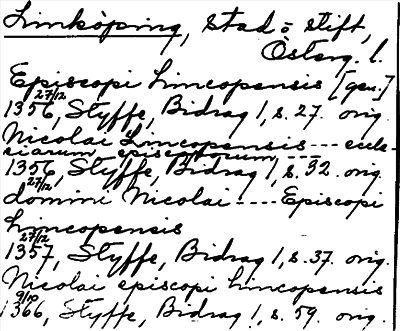 Linköping, stad o stift,
Österg. l.
Episcopi Lincopensis [gen.]
1356 27/12, Styffe, Bidrag 1, s. 27. orig.
Nicolai Lincopensis --- eccle-
siarum episcoporum ---
1356 27/12, Styffe, Bidrag 1, s. 32. orig.
domini Nicolai ---- Episcopi
Lincopensis
1357 27/12, Styffe, Bidrag 1, s. 37. orig.
Nicolai episcopi Lincopensis
1366 9/10, Styffe, Bidrag 1, s. 59. orig.